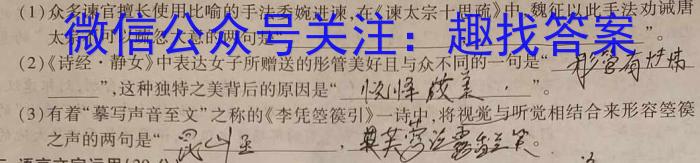 (1)众多谏官擅长使用比喻的手法委婉进谏,在《谏太宗十思疏》中,魏征以此手法劝诫唐
太宗不可以
的两句是“
微信公众号关注：趣找答案
(2)《诗经·静女》中表达女子所赠送的彤管美好且与众不同的一句是“ 彤管有炜
”,这种独特之美背后的原因是“ 说怿 美 ”。
(3)有着“摹写声音至文”之称的《李凭箜篌引》一诗中,将视觉与听觉相结合来形容箜篌
之声的两句是“ 昆山玉 , 芙蓉泣露 笑。